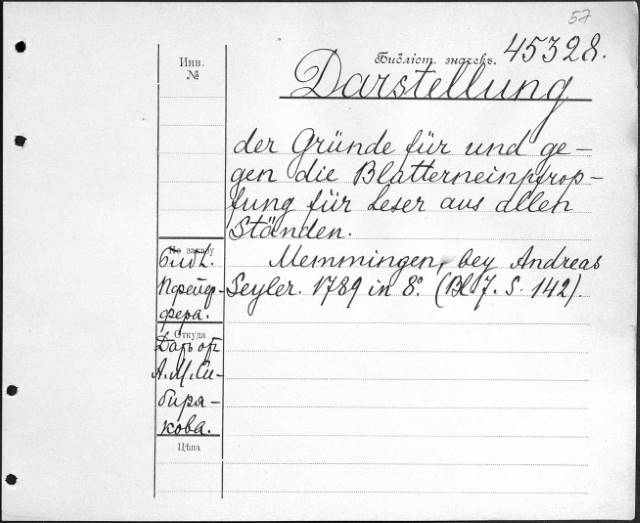 57
Инв.
№
Библіот. значекъ.
45328.
Darstellung
der Gründe für und ge-
gen die Blatterneinpfrop-
fung für Leser aus allen
Ständen.
Memmingen, bey Andreas
Seyler. 1789 in 8º. (Bl 7. S. 142).
По заказу
библ.
Пфейф-
фера.
Откуда
Даръ от
А. М. Си-
биря-
кова.
Цѣна